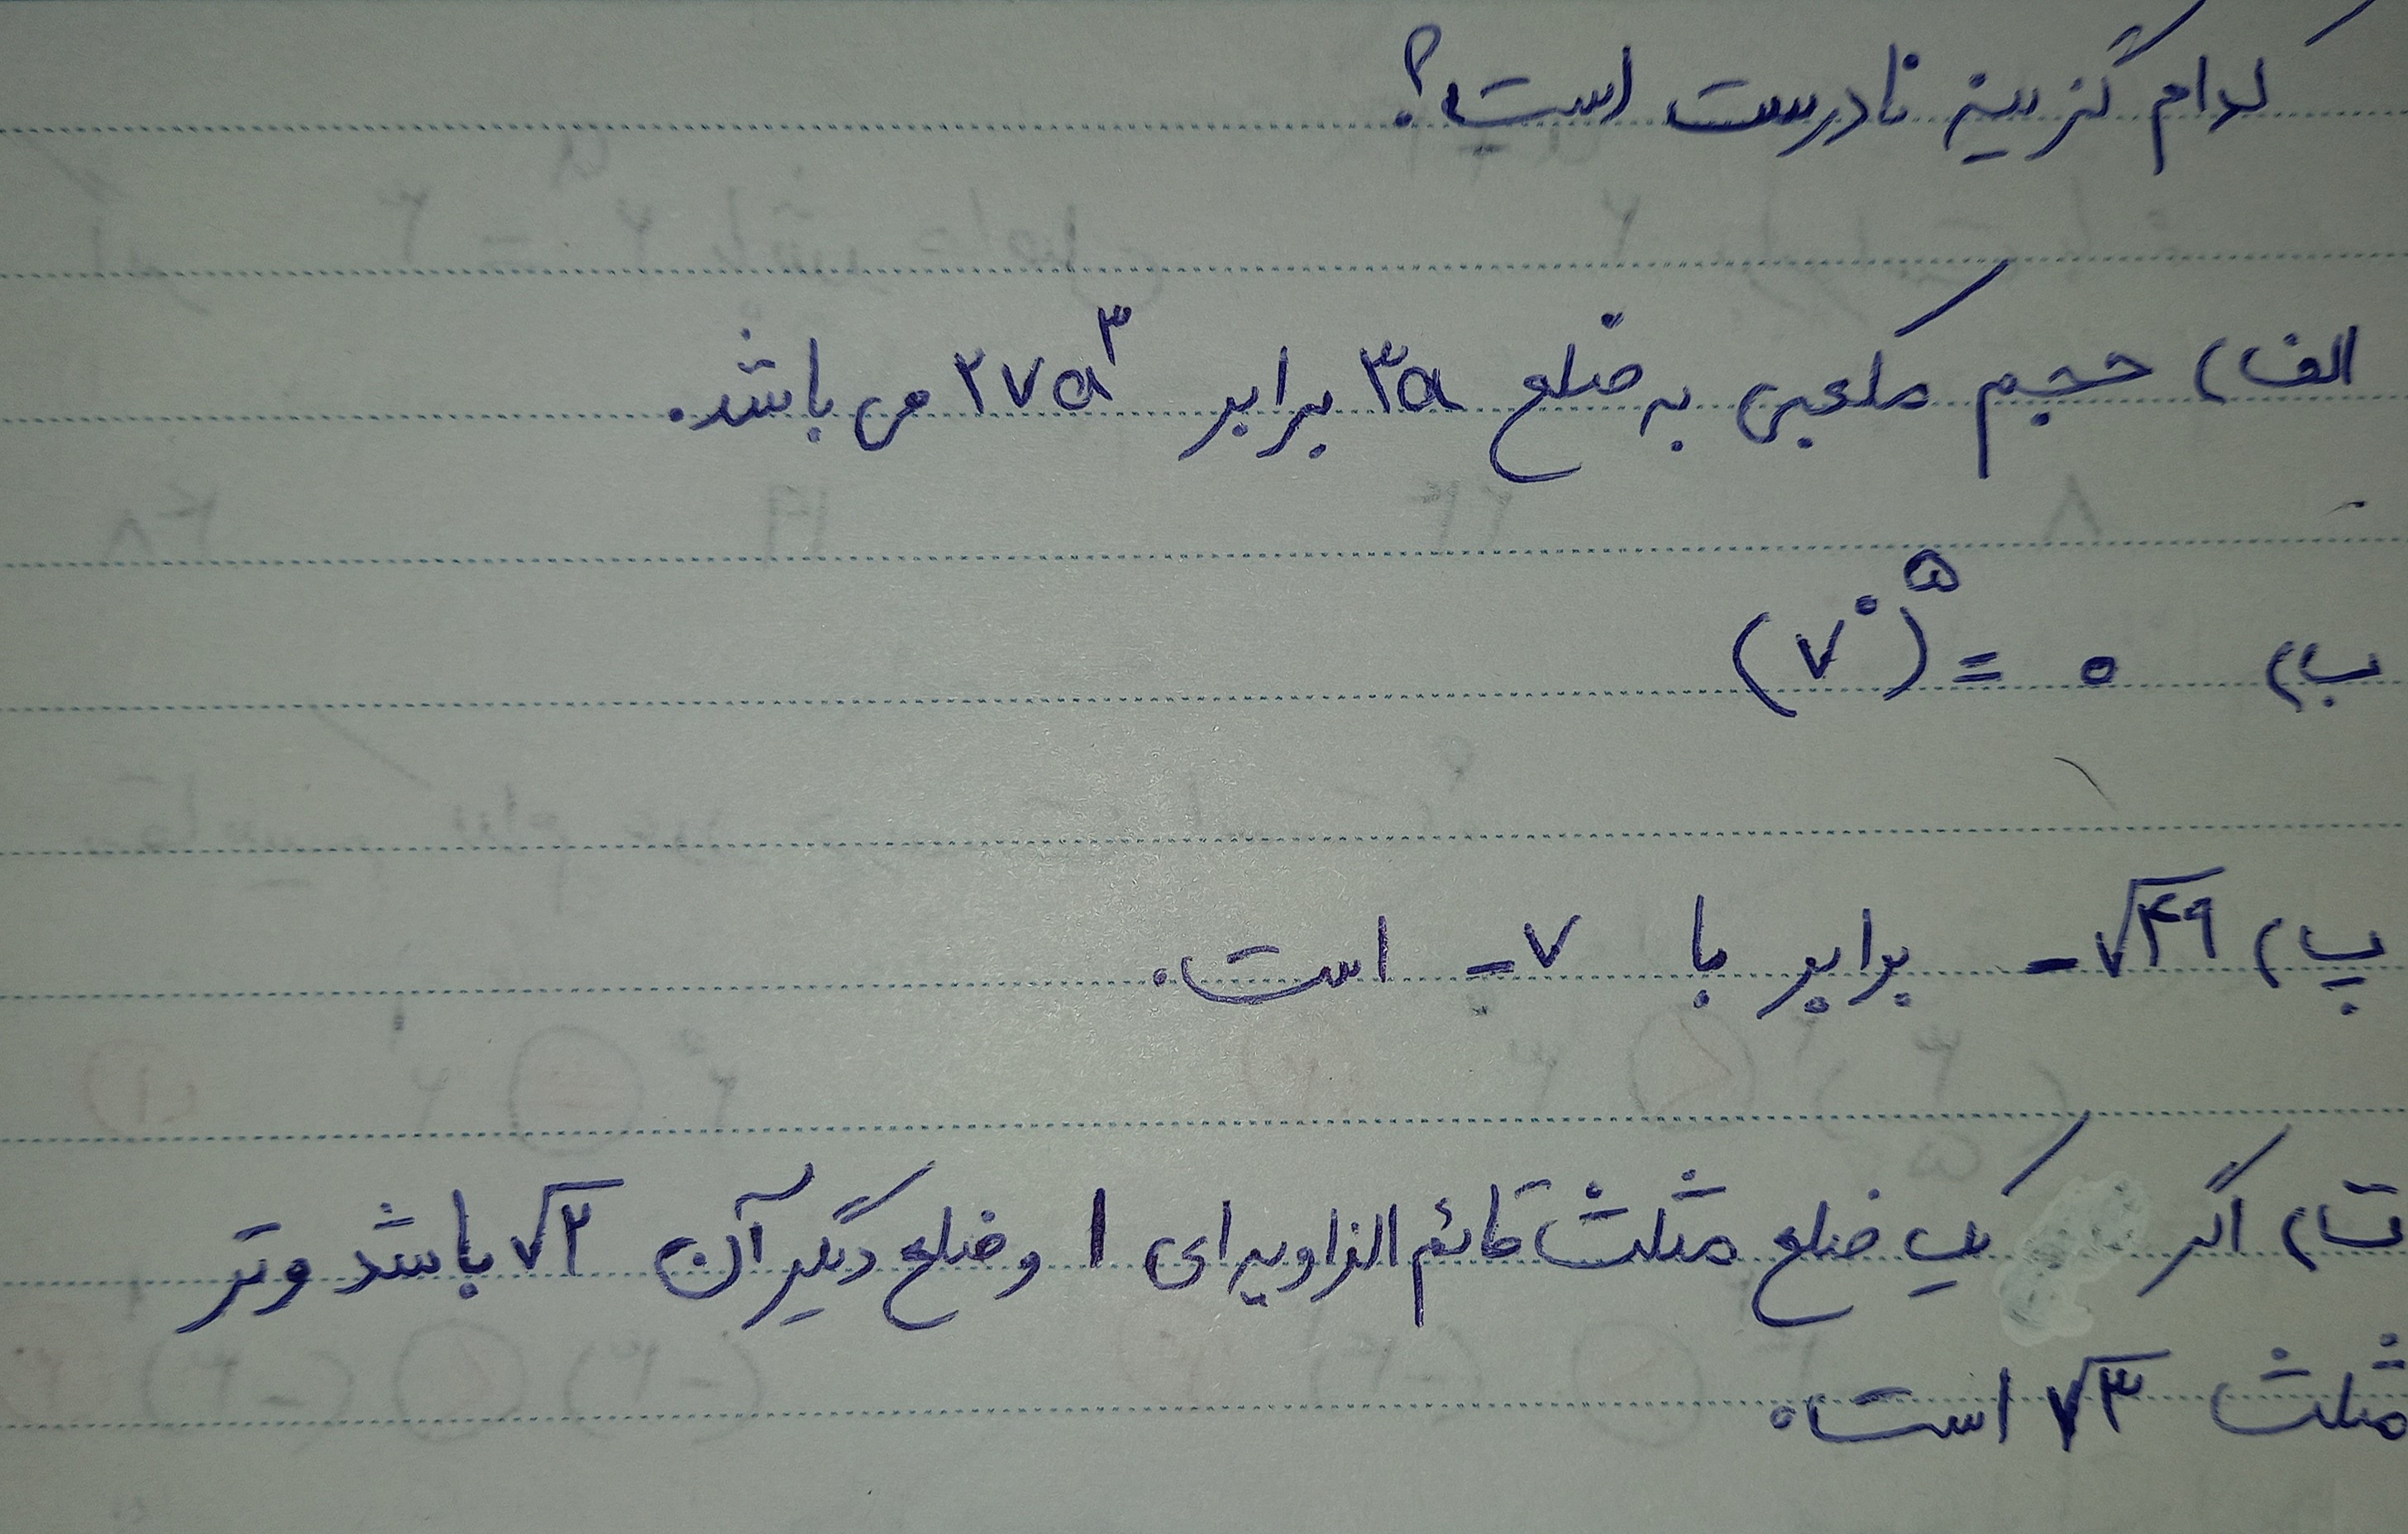 کدام گزینه نادرست است؟
الف) حجم مکعبی به ضلع ۳a برابر ۲۷a³ می باشد.
ب) (۷⁰)⁵ = ۰
پ) -√۴۹ برابر با -۷ است.
ت) اگر یک ضلع مثلث قائم الزاویه ای ۱ و ضلع دیگر آن √۲ باشد وتر
مثلث √۳ است.